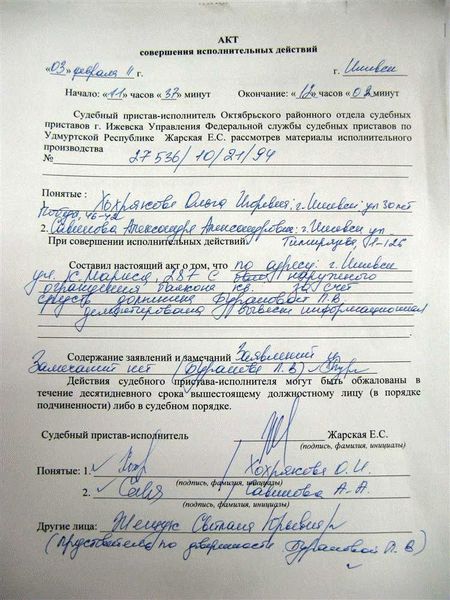 АКТ
совершения исполнительных действий
«03» февраля 11 г. г. Ижевск
Начало: «11» часов «37» минут Окончание: «12» часов «02» минут
Судебный пристав-исполнитель Октябрьского районного отдела судебных
приставов г. Ижевска Управления Федеральной службы судебных приставов по
Удмуртской Республике Жарская Е.С. рассмотрев материалы исполнительного
производства
№ 27536/10/21/94
Понятые :
1. Хохрякова Ольга Игоревна; г. Ижевск ул 30 лет
Победы, 46-42
2. Савинова Александра Александровна; г. Ижевск ул
При совершении исполнительных действий Тимирязева
Составил настоящий акт о том, что по адресу: г. Ижевск
ул. К. Маркса, 287 с наружного
ограждения балкона кв. за счет
средств должника Бурановой Л.В.
демонтирована вывеска информационная
Содержание заявлений и замечаний Заявлений и
Замечаний нет (Буранова Л.В)
Действия судебного пристава-исполнителя могут быть обжалованы в
течение десятидневного срока вышестоящему должностному лицу (в порядке
подчиненности) либо в судебном порядке.
Судебный пристав-исполнитель Жарская Е.С.
(подпись, фамилия, инициалы)
Понятые: 1. Хохрякова О.И.
(подпись, фамилия, инициалы)
2. Савинова А.А.
(подпись, фамилия, инициалы)
Другие лица: Светлана Юрьевна
(представитель по доверенности Бурановой Л.В)